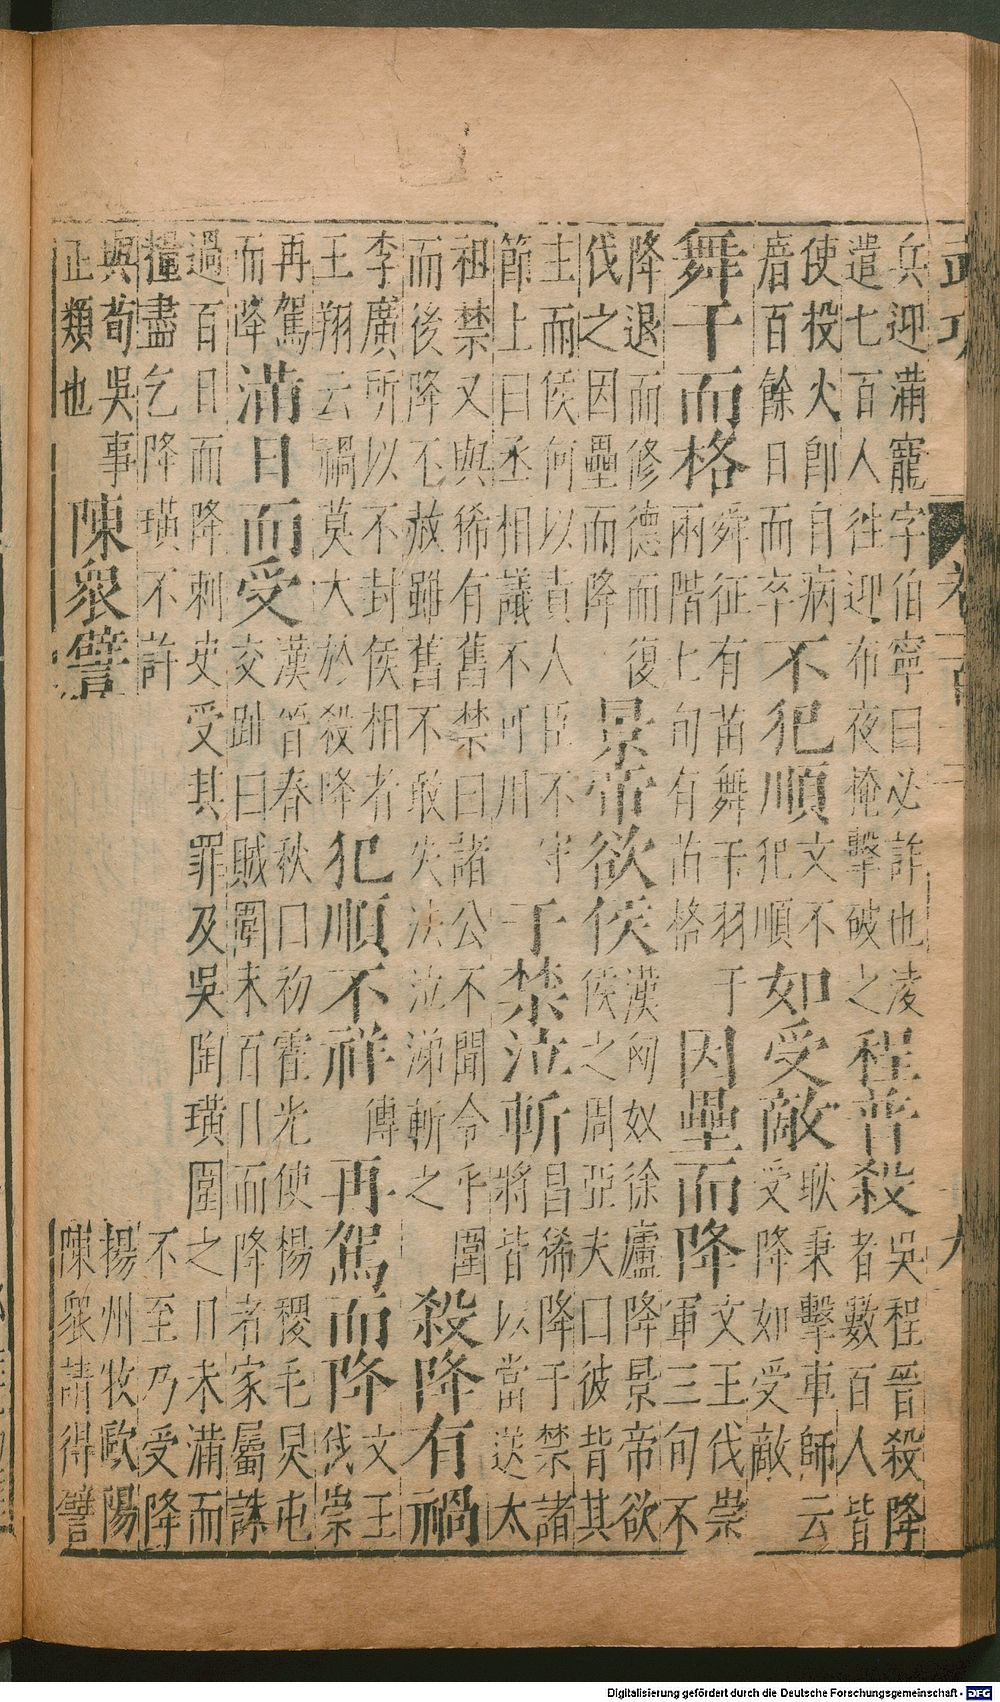 兵迎滿寵字伯寧曰必詐也凌
遣七百人往迎布夜掩擊破之
程普殺
吳程晉殺降
者數百人皆
使投火卽自病
厝百餘日而卒
不犯順
文不
犯順
如受敵
耿秉擊車師云
受降如受敵
舞干而格
舜征有苗舞干羽于
兩階七旬有苗格
因壘而降
文王伐崇
軍三旬不
降退而修德而復
伐之因壘而降
景帝欲侯
漢匈奴徐廬降景帝欲
侯之周亞夫曰彼背其
主而侯何以責人臣不守
節上曰丞相議不可用
于禁泣斬
昌狶降于禁諸
將皆以當送太
祖禁又與狶有舊禁曰諸公不聞令乎圍
而後降不赦雖舊不敢失法泣涕斬之
殺降有禍
李廣所以不封侯相者
王翔云禍莫大於殺降
犯順不祥
傳
再駕而降
文王
伐崇
再駕
而降
滿日而受
漢晉春秋曰初霍光使楊稷毛炅屯
交趾曰賊圍未百日而降者家屬誅
過百日而降刺史受其罪及吳陶璜圍之日未滿而
糧盡乞降璜不許
不至乃受降
與荀吳事
正類也
陳衆譬
揚州牧歐陽
陳衆請得譬
Digitalisierung gefördert durch die Deutsche Forschungsgemeinschaft - DFG